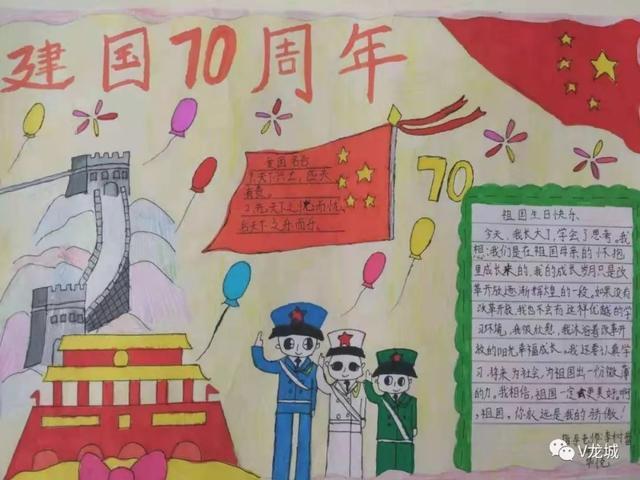 建国70周年
爱国名言
1.天下兴亡，匹夫
有责。
2.先天下之忧而忧，
后天下之乐而乐。
70
祖国生日快乐
今天，我长大了，学会了思考。我
想:我们是在祖国母亲的怀抱
里成长来的，我的成长岁月只是改
革开放逐渐辉煌的一段，如果没有
改革开放，我也不会有这样优越的学
习环境，我很欣慰，我沐浴着改革开
放的阳光幸福成长。我还要认真学
习，将来为社会，为祖国出一份微薄
的力。我相信，祖国一定会更美好。啊
，祖国，你永远是我的骄傲！
V龙城